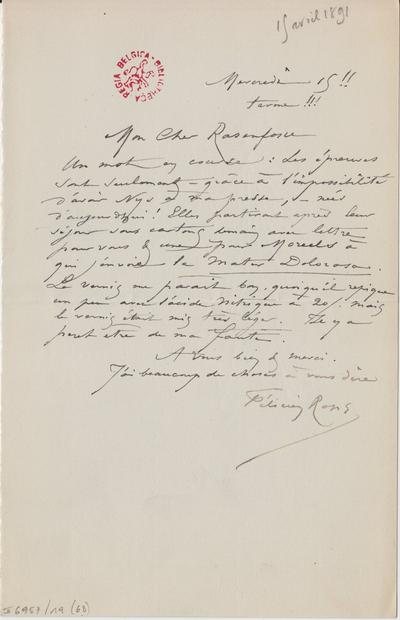 15 avril 1891
REGIA BELGICA BIBLIOTHECA
Mercredi 15 !!
terme !!!
Mon Cher Rassenfosse
Un mot en course : Les épreuves
sont seulement – grâce à l'impossibilité
d'avoir Nys et sa presse, – nées
d'aujourd'hui ! Elles partiront après leur
séjour sous cartons demain avec lettre
pour vous & une pour Moreels à
qui j'envoie la Mater Dolorosa.
Le vernis me paraît bon, quoiqu'il
un peu avec l'acide nitrique à 20. mais
le vernis était mis très léger. Il y a
peut etre de ma faute.
A vous bien & merci.
J'ai beaucoup de choses à vous dire
Félicien Rops
II 6957/19 (60)